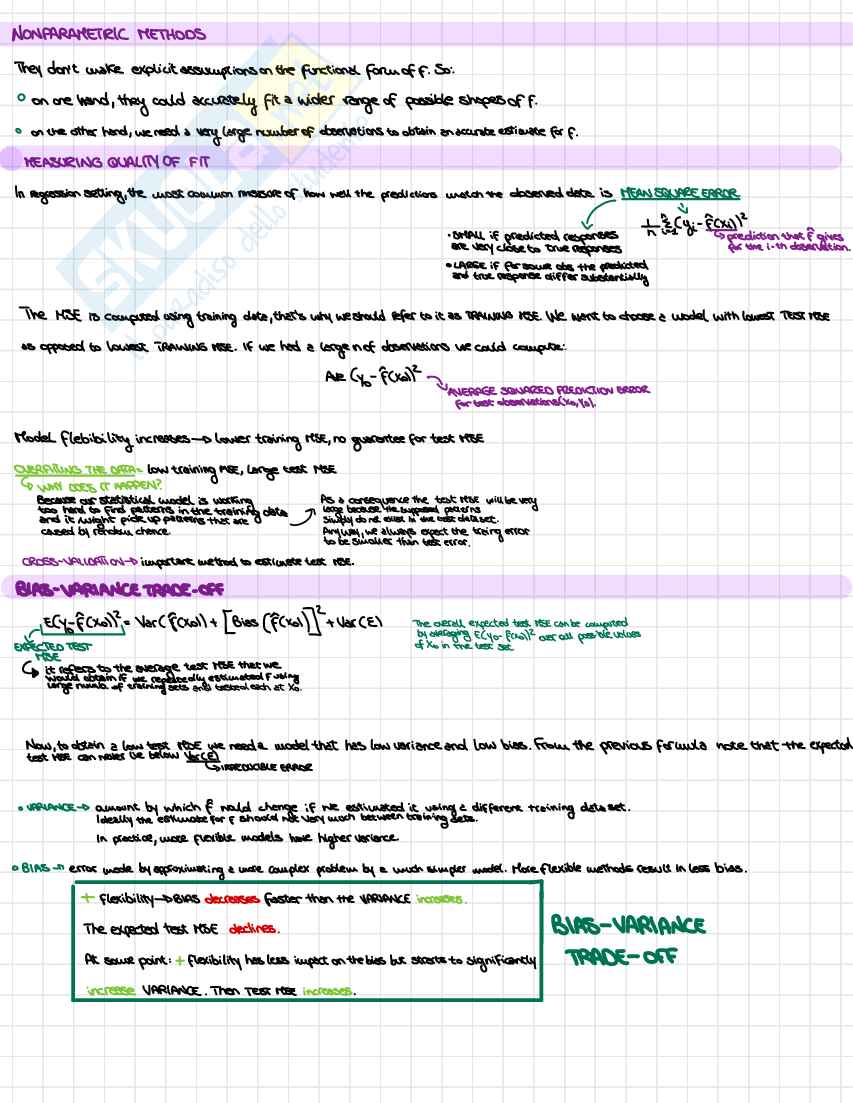 NONPARAMETRIC METHODS
They don't make explicit assumptions on the functional form of f. So:
on one hand, they could accurately fit a wider range of possible shapes of f.
on the other hand, we need a very large number of observations to obtain an accurate estimate for f.
MEASURING QUALITY OF FIT
In regression setting, the most common measure of how well the predictions match the observed data is MEAN SQUARE ERROR
1/n Σ i=1 n (yi - f̂(xi))²
• SMALL if predicted responses
are very close to true reponses
→ prediction that f̂ gives
for the i-th observation.
• LARGE if for some obs the predicted
and true response differ substantially
SKUOLA.net
il paradiso dello studente
The MSE is computed using training data, that's why we should refer to it as TRAINING MSE. We want to choose a model with lowest TEST MSE
as opposed to lowest TRAINING MSE. If we had a large n of observations we could compute:
Ave (y0 - f̂(x0))²
→ AVERAGE SQUARED PREDICTION ERROR
for test observations (x0, y0).
Model flebibility increases → lower training MSE, no guarantee for test MSE
OVERFITTING THE DATA = low training MSE, large test MSE
→ WHY DOES IT HAPPEN?
Because our statistical model is working
too hard to find patterns in the training data
and it might pick up patterns that are
caused by random chance.
→ As a consequence the test MSE will be very
large because the supposed patterns
simply do not exist in the test data set.
Anyway, we always expect the traing error
to be smaller than test error.
CROSS-VALIDATION → important method to estimate test MSE.
BIAS-VARIANCE TRADE-OFF
E(y0 - f̂(x0))² = Var(f̂(x0)) + [Bias (f̂(x0))]² + Var(E)
EXPECTED TEST
MSE
The overall expected test MSE can be computed
by averaging E(y0 - f̂(x0))² over all possible values
of x0 in the test set
→ it refers to the average test MSE that we
would obtain if we repeatedly estimated f using
large numb. of training sets and tested each at x0.
Now, to obtain a low test MSE we need a model that has low variance and low bias. From the previous formula note that the expected
test MSE can never be below Var(E)
→ IRREDUCIBLE ERROR
• VARIANCE → amount by which f̂ would change if we estimated it using a different training data set.
Ideally the estimate for f should not vary much between training data.
In practice, more flexible models have higher variance.
• BIAS → error made by approximating a more complex problem by a much simpler model. More flexible methods result in less bias.
+ flexibility → BIAS decreases faster than the VARIANCE increases.
The expected test MSE declines.
At some point: + flexibility has less impact on the bias but starts to significantly
increase VARIANCE. Then TEST MSE increases.
BIAS-VARIANCE
TRADE-OFF